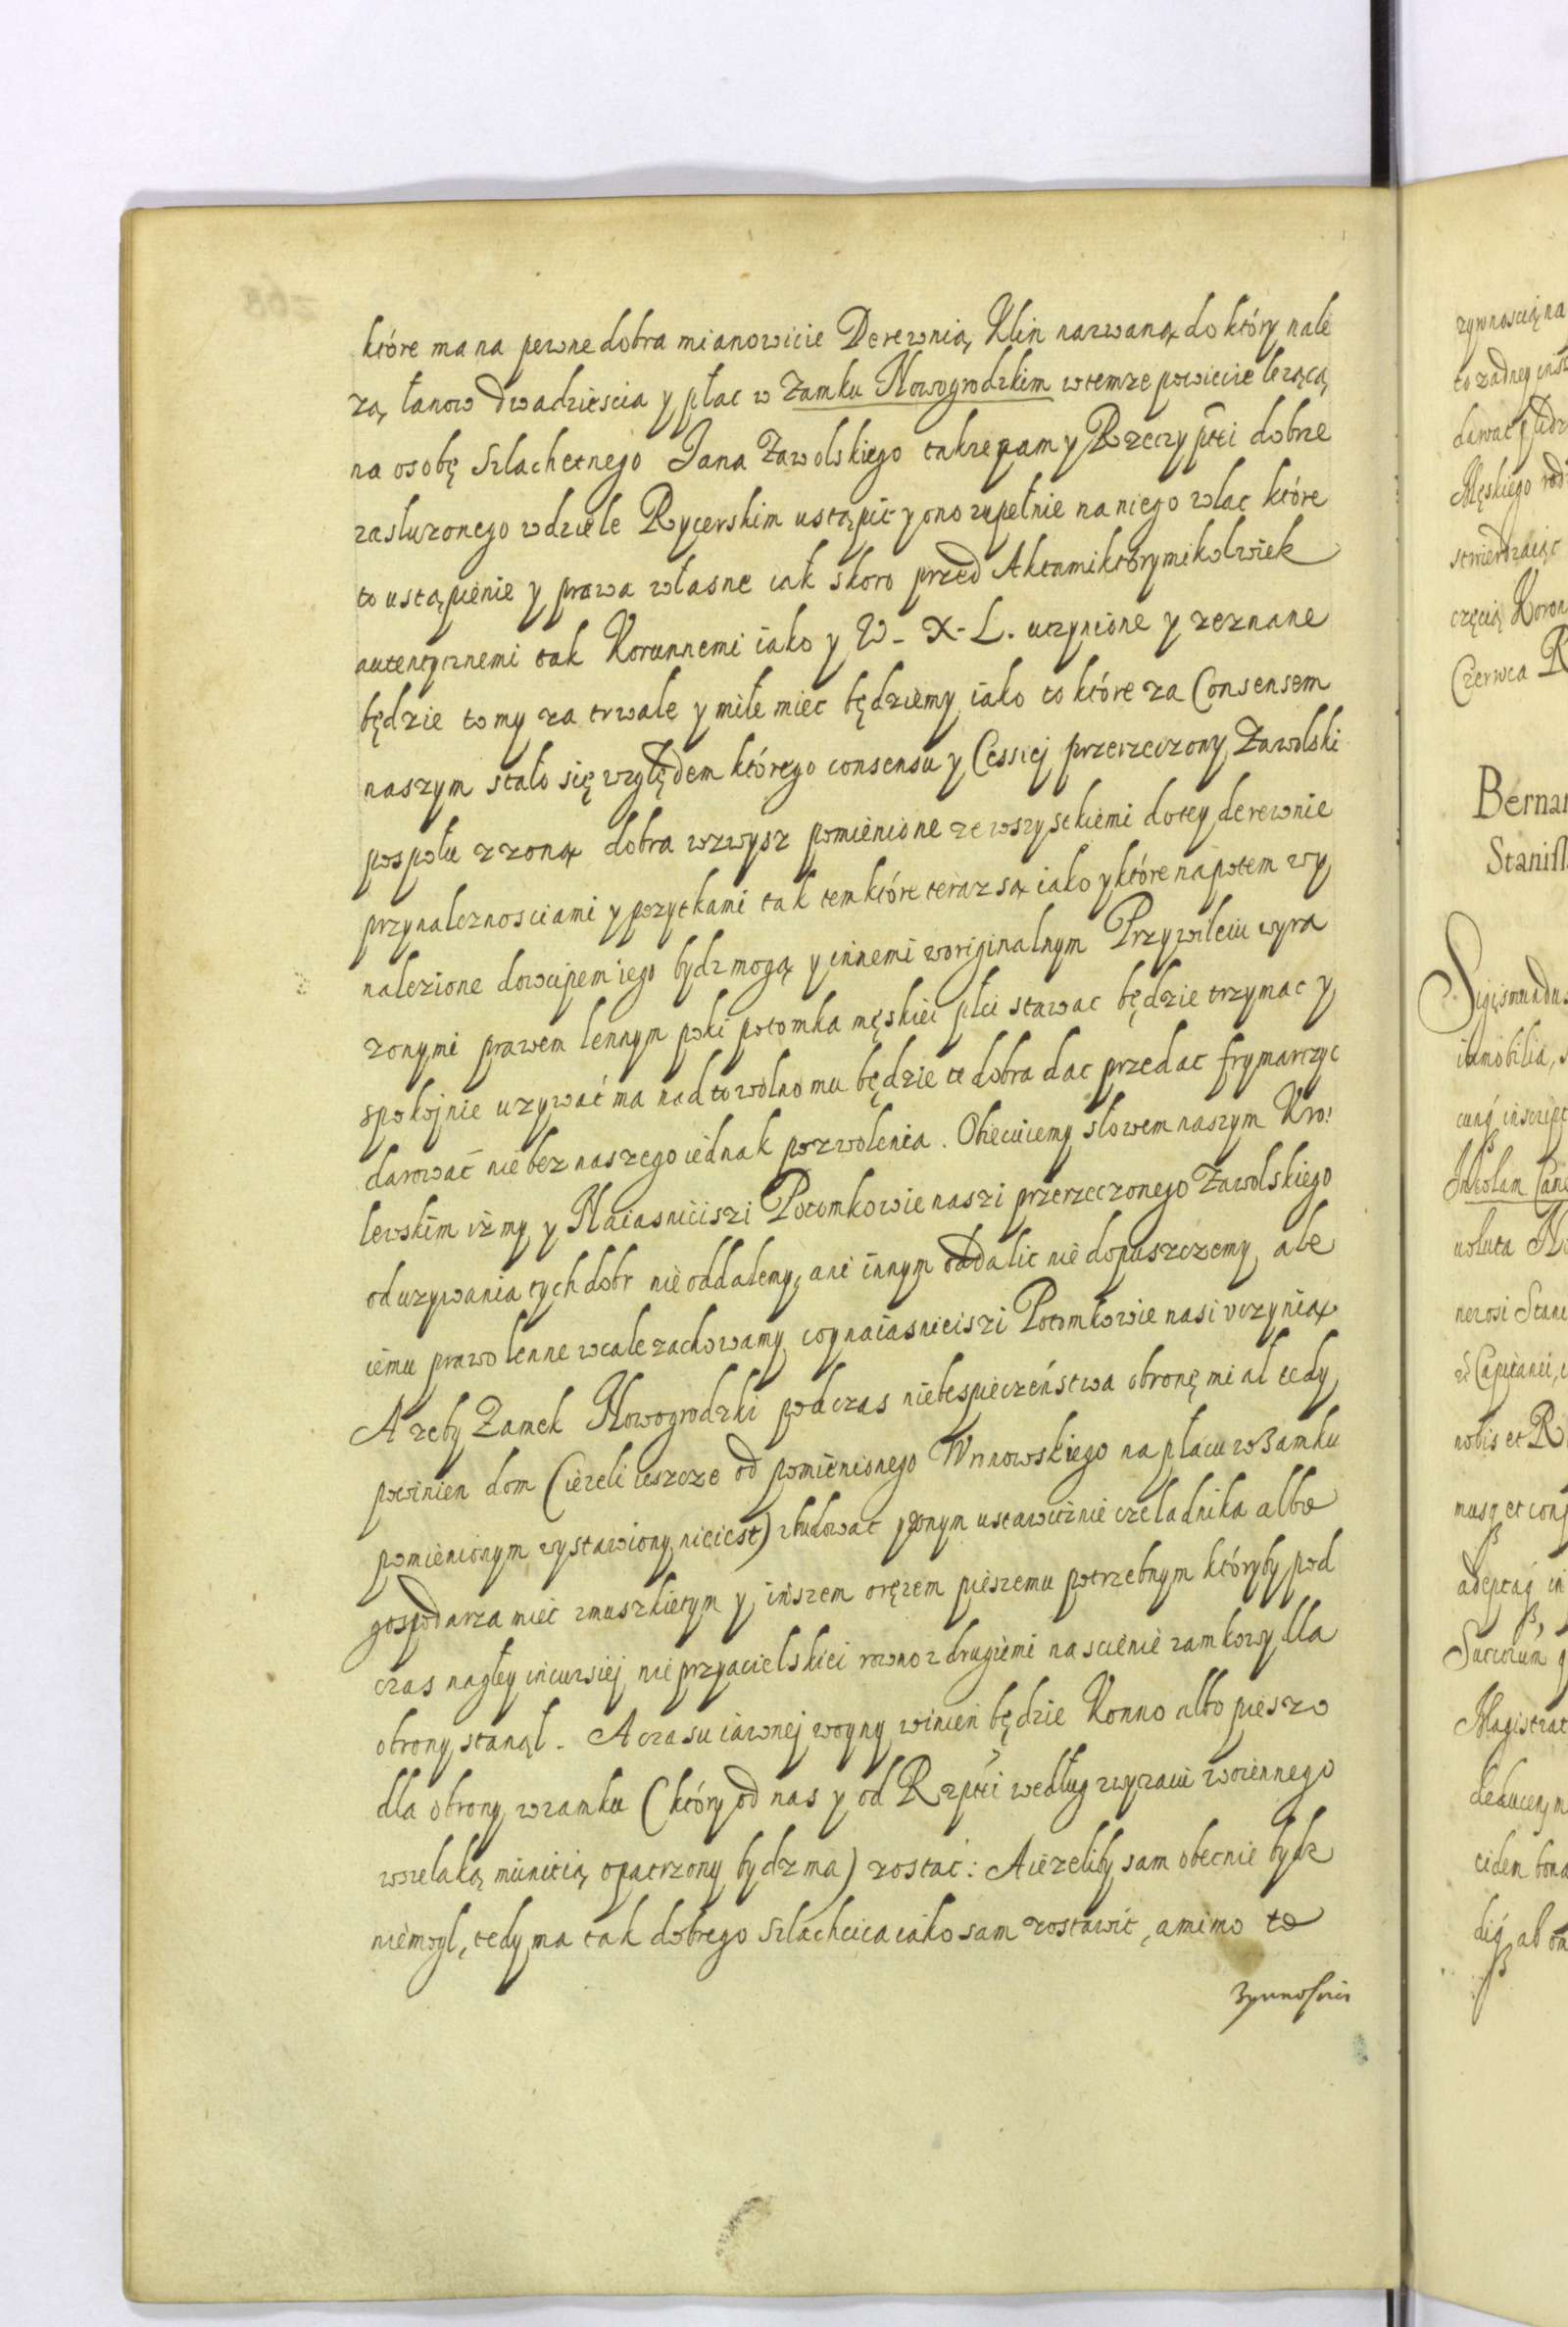 które ma na pewne dobra mianowicie Derewnią Klin nazwaną do który nale
zą łanow dwadzieścia y płac w Zamku Nowogrodzkim wtemze powiecie lezącą
na osobę Szlachetnego Jana Zawolskiego takze nam y Rzeczyptti dobrze
zasluzonego wdziele Rycerskim ustąpić y ono zupełnie na niego wlac które
to ustąpienie y prawa własne iak skoro przed Aktami którymikolwiek
autentycznemi tak Korunnemi iako y W - X - L. uczynione y zeznane
będzie to my za trwale y miłe miec będziemy iako to które za Consensem
naszym stało się względem którego consensu y Cessiej przerzeczony Zawolski
pospołu z zoną dobra wzwysz pomienione ze wszystkiemi do tey derewnie
przynaleznosciami y pozytkami tak tem które teraz są iako y które napotem wy
nalezione dowcipem iego bydz mogą y innemi woriginalnym Przywileiu wyra
zonymi prawem lennym poki potomka męskiei płci stawac będzie trzymac y
spokojnie uzywać ma nad to wolno mu będzie te dobra dac przedac frymarczyc
darować nie bez naszego iednak pozwolenia. Obiecuiemy słowem naszym Kro:
lewskim iż my y Naiasnieiszi Potomkowie naszi przerzeczonego Zawolskiego
od uzywania tych dobr nie oddalemy, ani innym oddalic nie dopuszczemy ale
iemu prawo lenne wcale zachowamy co y naiasnieiszi Potomkowie nasi vczynią
A zeby Zamek Nowogrodzki podczas niebespieczeństwa obronę miał tedy
powinien dom (iezeli ieszcze od pomienionego Wronowskiego na płacu w Zamku
pomienionym wystawiony nieiest) zbudowac y wonym ustawicznie czeladnika albo
gospodarza mieć zmuszkietym y inszem orężem pieszemu potrzebnym któryby pod
czas nagłey incursiej nieprzyacielskiei rowno z drugiemi na scienie zamkowy dla
obrony stanął. A czasu iawnej woyny winien będzie Konno albo pieszo
dla obrony wzamku (który od nas y od Rzptti według zwyczaiu woiennego
wszelaką municią opatrzony bydz ma) zostać: A iezeliby sam obecnie bydz
niemogl, tedy ma tak dobrego Szlachcica iako sam zostawić, a mimo to
zywnoscią na
to zadney
dawac
Męskiego
stwierdzaiąc
Czerwca
Stanisl
Sigismundus
immobilia,
nobis et R
Magistrat
ciden bona